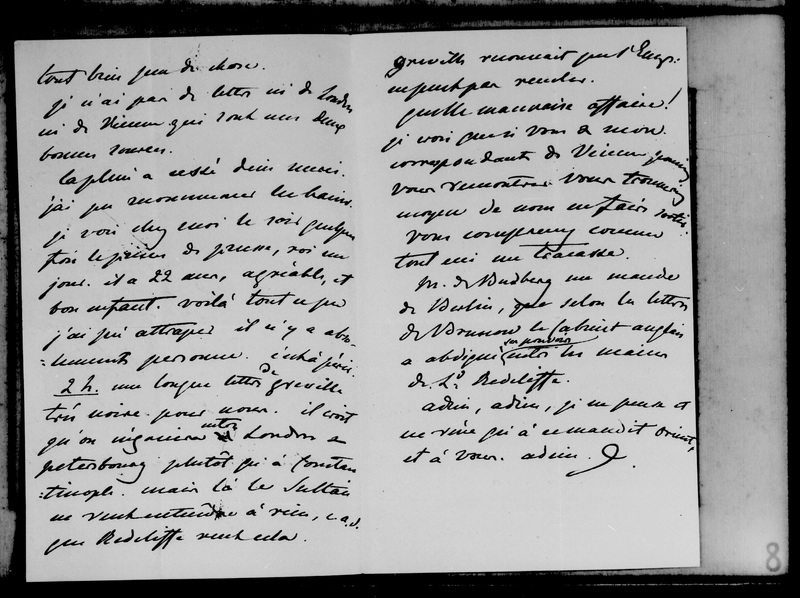 tout bien peu de chose.
je n'ai pas de lettre ni de Londres
ni de Vienne qui sont mes deux
bonnes sources.
la pluie a cessé dieu merci.
j'ai pu recommencer les bains.
je vois chez moi le soir quelque
fois le prince de prusse, roi un
jour. il a 22 ans, agréable, et
bon enfant. voilà tout ce que
j'ai pu attraper il n'y a abso-
-lument personne. c'est à périr.
2 h. une longue lettre de greville
très noire pour nous. il croit
qu'on négociera entre Londres &
petersbourg plutôt qu'à Constan
-tinople. mais là le Sultan
ne veut entendre à rien, c.a.d.
que Redcliffe veut cela.
greville reconnait que l'Emp:
ne peut pas reculer.
quelle mauvaise affaire!
je crois que si vous & mon
correspondant de Vienne
vous rencontriez vous trouveriez
moyen de nous en faire sortir.
vous comprenez comme
tout ceci me tracasse.
M. de Budberg me mande
de Berlin, que selon les lettres
de Brunnow le Cabinet anglais
a abdiqué son pouvoir entre les mains
de Ld Redcliffe.
adieu, adieu, je ne pense et
ne rêve qu'à ce maudit Orient,
et à vous. adieu.
8